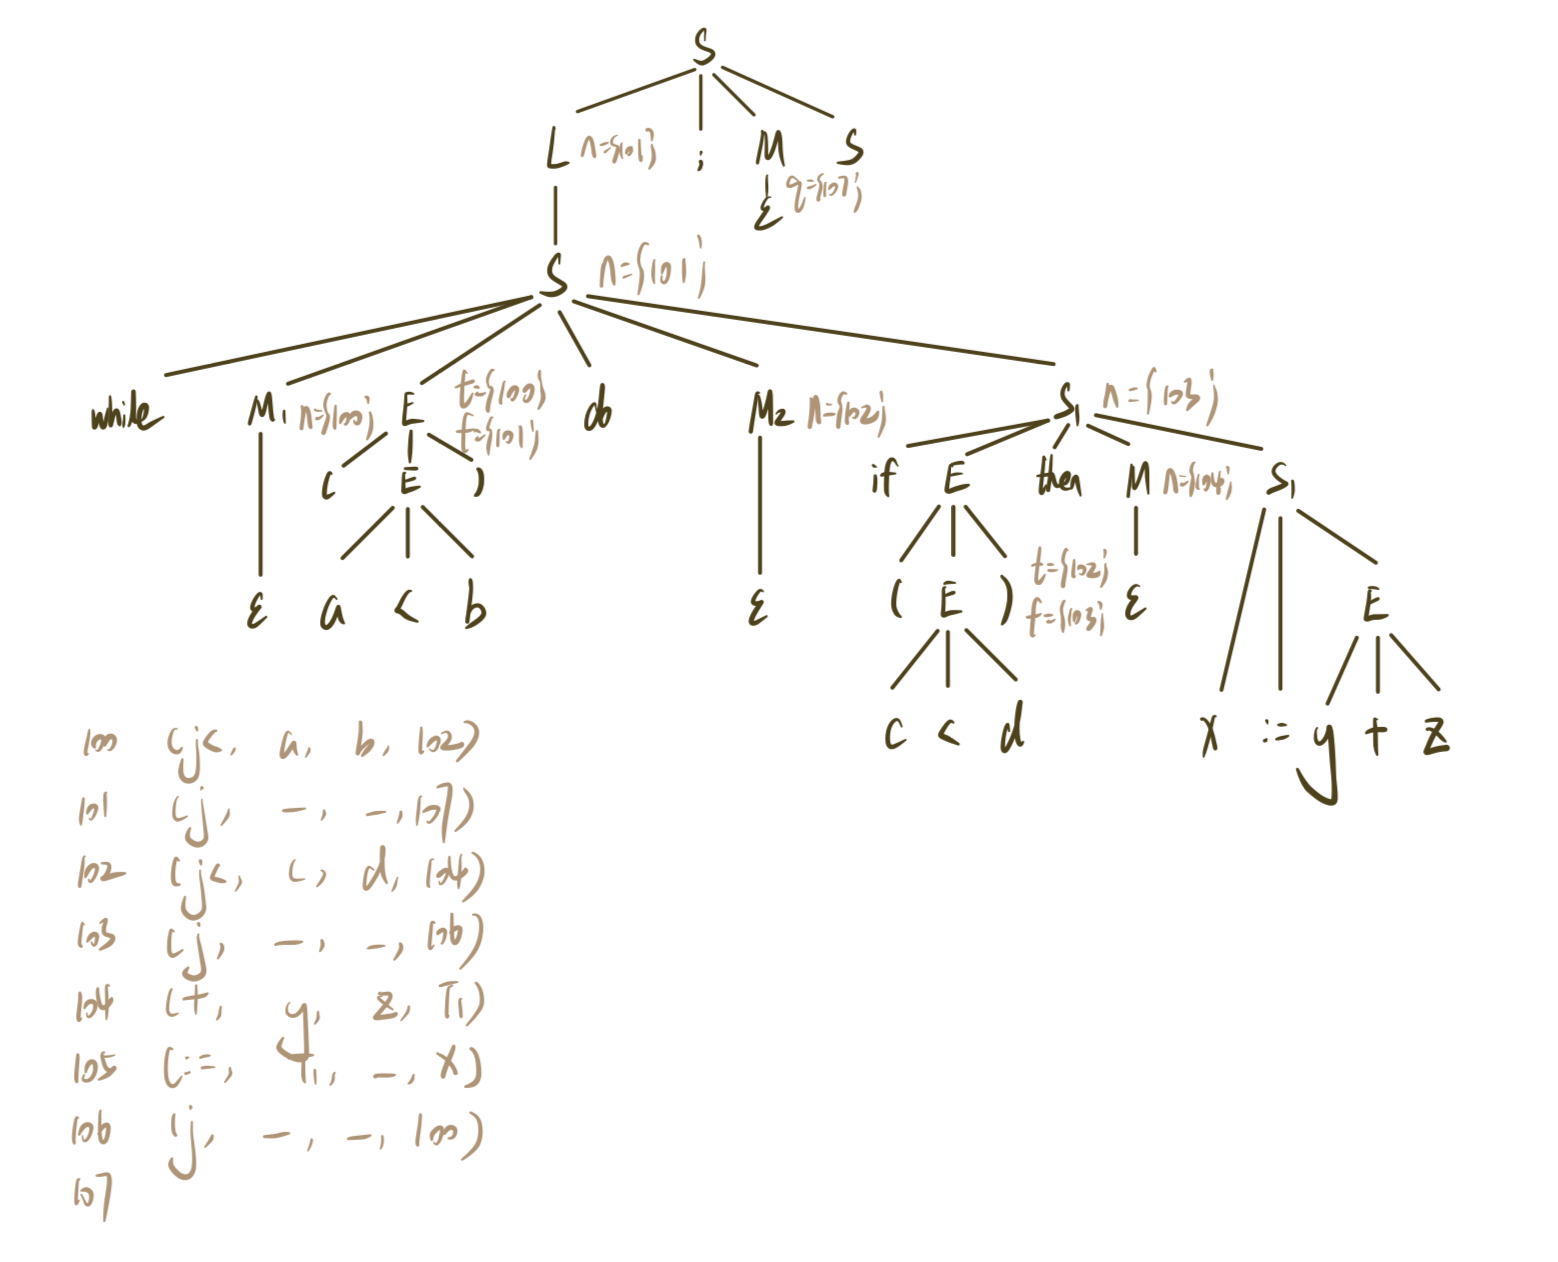 S
L n={101} ; M S
ε q={107}
S n={101}
while M₁ n={100} E t={100} do M₂ n={102} S₁ n={103}
f={101}
( E ) if E then M n={104} S₁
t={102}
ε a < b ε ( E ) f={103} ε E
c < d x := y + z
100 (j<, a, b, 102)
101 (j, –, –, 107)
102 (j<, c, d, 104)
103 (j, –, –, 106)
104 (+, y, z, T₁)
105 (:=, T₁, –, x)
106 (j, –, –, 100)
107